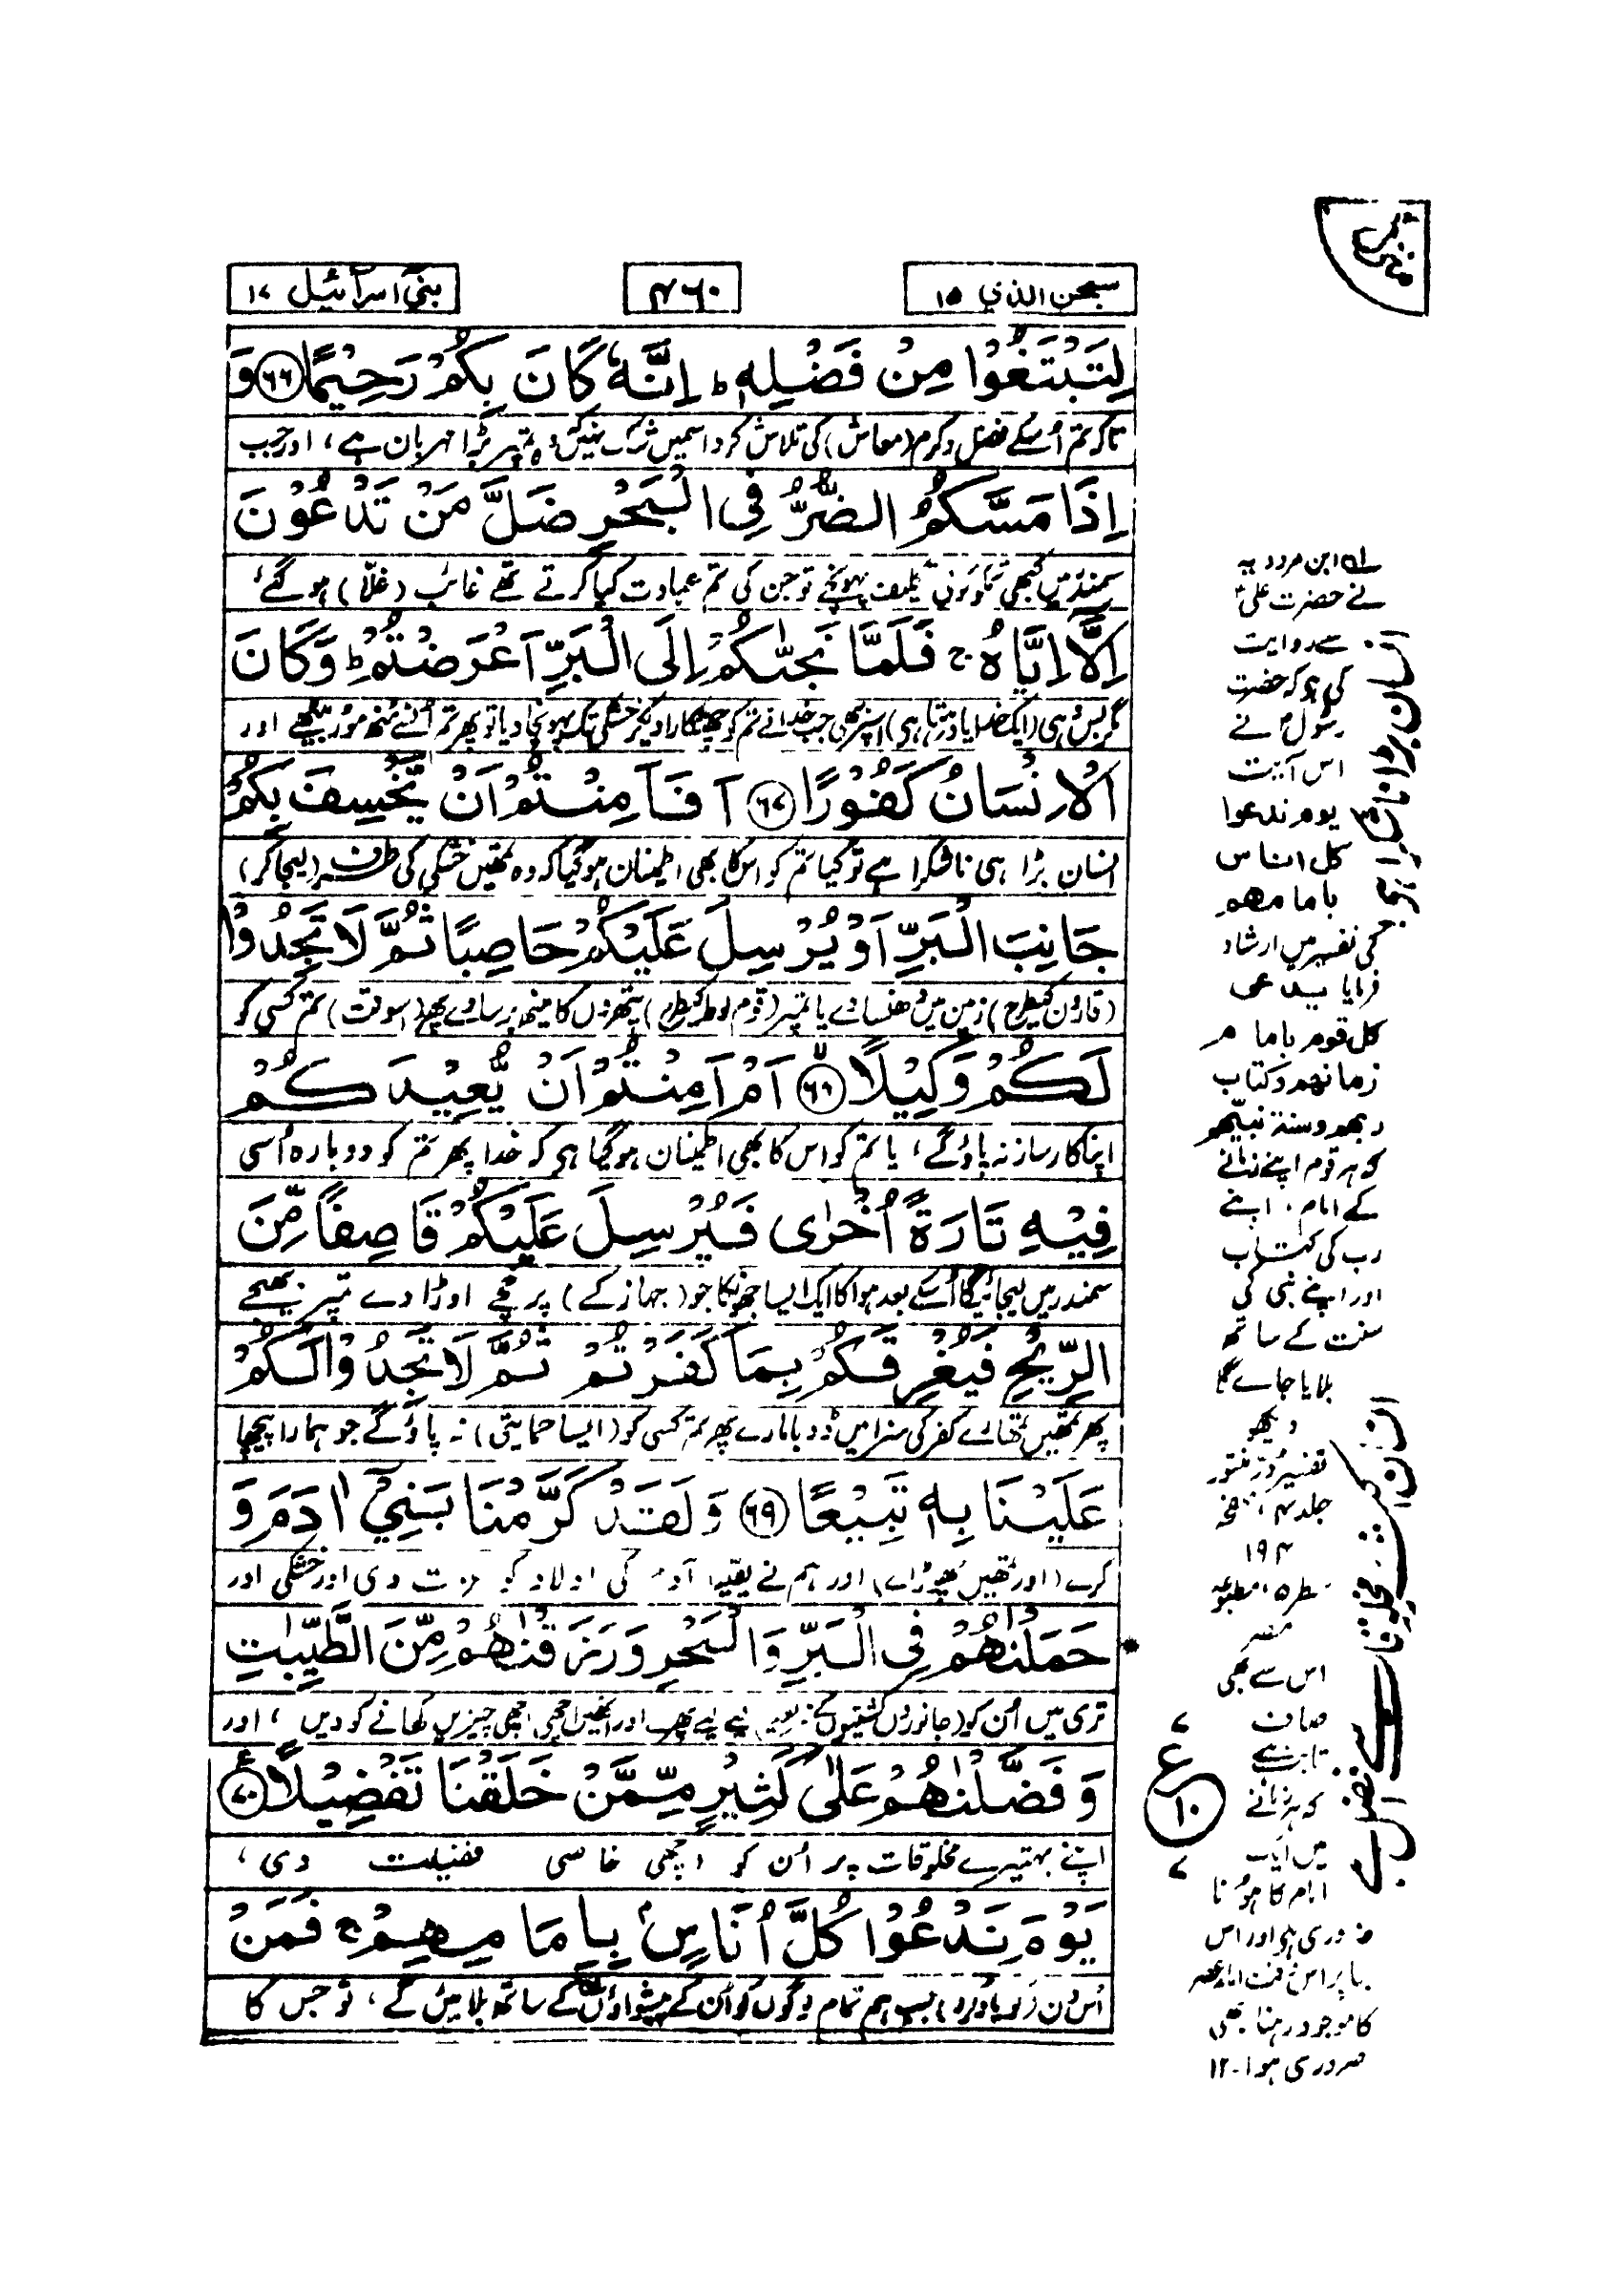 سبحن الذي ۱۵
۴۶۰
بنیٓ اسرآئیل ۱۷
لِتَبْتَغُوْا مِنْ فَضْلِهٖ ؕ اِنَّهٗ كَانَ بِكُمْ رَحِيْمًا ﴿۶۶﴾ وَ
تاکہ تم اُسکے فضل و کرم (معاش) کی تلاش کرو اسمیں شک نہیں کہ وہ تمپر بڑا مہربان ہے، اور جب
اِذَا مَسَّكُمُ الضُّرُّ فِي الْبَحْرِ ضَلَّ مَنْ تَدْعُوْنَ
سمندر میں کبھی تمکو کوئی تکلیف پہونچے تو جن کی تم عبادت کیا کرتے تھے غائب (غلّا) ہو گئے
اِلَّآ اِيَّاهُ ۚ فَلَمَّا نَجّٰىكُمْ اِلَى الْبَرِّ اَعْرَضْتُمْ ؕ وَكَانَ
مگر بس وہی (ایک خدا یاد رہتا ہی) اسپر بھی جب خدا نے تم کو چھٹکارا دیکر خشکی تک پہونچا دیا تو پھر تم اُسے منھ موڑ بیٹھے اور
الْاِنْسَانُ كَفُوْرًا ﴿۶۷﴾ اَفَاَمِنْتُمْ اَنْ يَّخْسِفَ بِكُمْ
انسان بڑا ہی ناشکرا ہے تو کیا تم کو اس کا بھی اطمینان ہو گیا کہ وہ تمھیں خشکی کی طرف (لیجا کر)
جَانِبَ الْبَرِّ اَوْ يُرْسِلَ عَلَيْكُمْ حَاصِبًا ثُمَّ لَا تَجِدُوْا
(قارون کیطرح) زمین میں دھنسا دے یا تمپر (قوم لوط کیطرح) پتھروں کا مینھ برسا دے پھر (اسوقت) تم کسی کو
لَكُمْ وَكِيْلًا ﴿۶۸﴾ اَمْ اَمِنْتُمْ اَنْ يُّعِيْدَكُمْ
اپنا کارساز نہ پاؤ گے، یا تم کو اس کا بھی اطمینان ہو گیا ہی کہ خدا پھر تم کو دوبارہ اُسی
فِيْهِ تَارَةً اُخْرٰى فَيُرْسِلَ عَلَيْكُمْ قَاصِفًا مِّنَ
سمندر میں لیجائیگا اُسکے بعد ہوا کا ایک ایسا جھونکا جو (جہاز کے) پرخچے اوڑا دے تمپر بھیجے
الرِّيْحِ فَيُغْرِقَكُمْ بِمَا كَفَرْتُمْ ثُمَّ لَا تَجِدُوْا لَكُمْ
پھر تمھیں تمھارے کفر کی سزا میں ڈوبا مارے پھر تم کسی کو (ایسا حمایتی) نہ پاؤ گے جو ہمارا پیچھا
عَلَيْنَا بِهٖ تَبِيْعًا ﴿۶۹﴾ وَلَقَدْ كَرَّمْنَا بَنِيْٓ اٰدَمَ وَ
کرے (اور تمھیں چھوڑائے) اور ہم نے یقیناً آدم کی اولاد کو عزت دی اور خشکی اور
حَمَلْنٰهُمْ فِي الْبَرِّ وَالْبَحْرِ وَرَزَقْنٰهُمْ مِّنَ الطَّيِّبٰتِ
تری میں اُن کو (جانوروں کشتیوں کے ذریعہ) لیے لیے پھرے اور انھیں اچھی اچھی چیزیں کھانے کو دیں، اور
وَفَضَّلْنٰهُمْ عَلٰى كَثِيْرٍ مِّمَّنْ خَلَقْنَا تَفْضِيْلًا ﴿۷۰﴾
اپنے بہتیرے مخلوقات پر اُن کو اچھی خاصی فضیلت دی،
يَوْمَ نَدْعُوْا كُلَّ اُنَاسٍۢ بِاِمَامِهِمْ ۚ فَمَنْ
اُس دن (کو یاد کرو) جب ہم تمام لوگوں کو اُن کے پیشواؤں کے ساتھ بلائیں گے، تو جس کا
۱؎ ابن مردویہ
نے حضرت علیؑ
سے روایت
کی ہی کہ حضرت
رسولؐ نے
اس آیت
یوم ندعوا
کل اناس
بامامهم
کی تفسیر میں ارشاد
فرمایا یدعی
کل قوم بامام
زمانهم وکتاب
ربهم وسنة نبیهم
کہ ہر قوم اپنے زمانے
کے امام، اپنے
رب کی کتاب
اور اپنے نبی کی
سنت کے ساتھ
بلایا جائے گا
دیکھو
تفسیر در منثور
جلد ۴ صفحہ
۱۹۴
سطر ۵ مطبوعہ
مصر
اس سے بھی
صاف
ثابت ہے
کہ ہر زمانے
میں ایک
امام کا ہونا
ضروری ہی اور اس
بنا پر اس وقت امام عصر
کا موجود رہنا بھی
ضروری ہوا ۔ ۱۲
انسان بڑا ناشکرا ہی
انسان اکثر مخلوقات سے افضل ہے
ع
۱۰
۷
۷